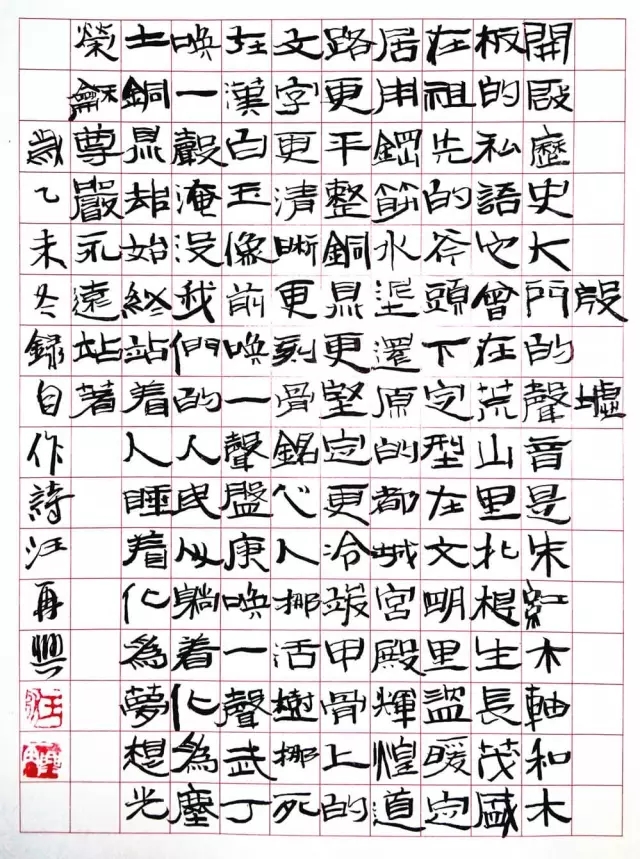 殷墟
開啟歷史大門的聲音是朱紅木軸和木
板的私語它曾在荒山里扎根生長茂盛
在祖先的斧頭下定型在文明里溫暖定
居用鋼筋水泥還原的都城宮殿輝煌道
路更平整銅鼎更堅定更冷峻甲骨上的
文字更清晰更刻骨銘心人挪活樹挪死
在漢白玉像前喚一聲盤庚喚一聲武丁
喚一聲淹没我們的人民从躺着化為塵
土銅鼎却始終站着人睡着化為夢想光
榮龢尊嚴永遠站著
歲乙未冬録自作詩汪再興